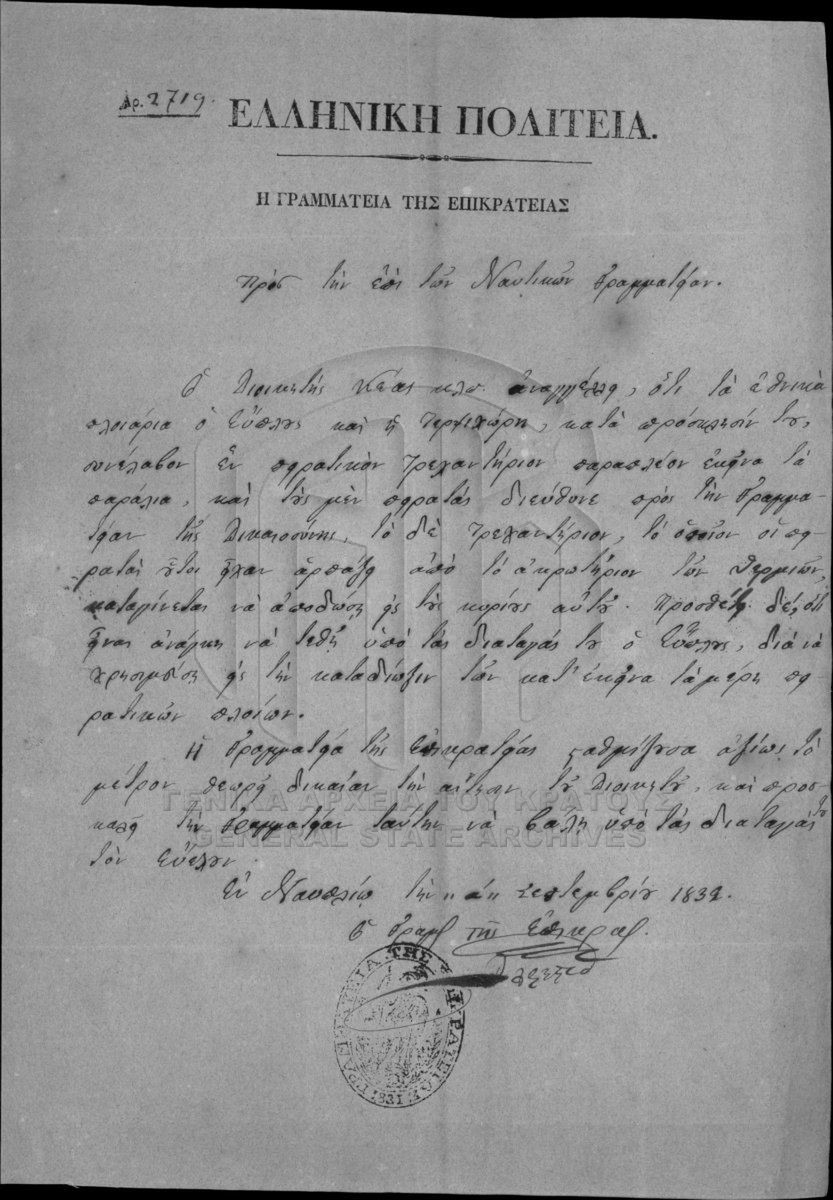 Αρ. 2719.
ΕΛΛΗΝΙΚΗ ΠΟΛΙΤΕΙΑ.
Η ΓΡΑΜΜΑΤΕΙΑ ΤΗΣ ΕΠΙΚΡΑΤΕΙΑΣ
Πρὸς τὴν ἐπὶ τῶν Ναυτικῶν Γραμματείαν.
Ὁ Διοικητὴς Κέας κλπ. ἀναγγέλλει, ὅτι τὰ ἐθνικὰ
πλοιάρια ὁ Εὔπλους καὶ ἡ Τερψιχόρη, κατὰ πρόσκλησίν του,
συνέλαβον ἓν πειρατικὸν τρεχαντήριον παραπλέον ἐκεῖνα τὰ
παράλια, καὶ τοὺς μὲν πειρατὰς διεύθυνε πρὸς τὴν Γραμμα-
τείαν τῆς Δικαιοσύνης, τὸ δὲ τρεχαντήριον, τὸ ὁποῖον οἱ πει-
ραταὶ οὗτοι εἶχαν ἁρπάξει ἀπὸ τὸ ἀκρωτήριον τῶν Θερμιῶν,
καταγίνεται νὰ ἀποδώσῃ εἰς τοὺς κυρίους αὐτοῦ. Προσθέτει δὲ, ὅτι
εἶναι ἀνάγκη νὰ τεθῇ ὑπὸ τὰς διαταγάς του ὁ Εὔπλους, διὰ νὰ
χρησιμεύσῃ εἰς τὴν καταδίωξιν τῶν κατ' ἐκεῖνα τὰ μέρη πει-
ρατικῶν πλοίων.
Ἡ Γραμματεία τῆς Ἐπικρατείας σταθμίζουσα ἀξίως τὸ
μέτρον θεωρεῖ δικαίαν τὴν αἴτησιν τοῦ Διοικητοῦ, καὶ προσ-
καλεῖ τὴν Γραμματείαν ταύτην νὰ βάλῃ ὑπὸ τὰς διαταγάς του
τὸν Εὔπλουν.
Ἐν Ναυπλίῳ τὴν Σεπτεμβρίου 1832.
Ὁ Γραμ. τῆς Ἐπικρατ.
ΓΡΑΜΜΑΤΕΙΑ ΤΗΣ ΕΠΙΚΡΑΤΕΙΑΣ 1831
ΓΕΝΙΚΑ ΑΡΧΕΙΑ ΤΟΥ ΚΡΑΤΟΥΣ
GENERAL STATE ARCHIVES